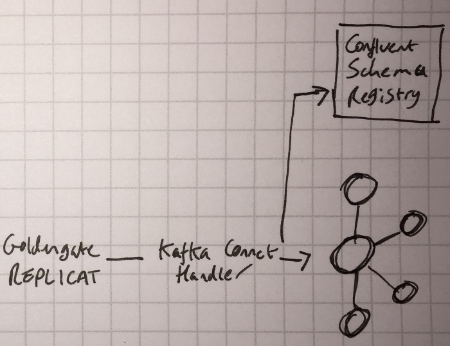 Confluent
Schema
Registry
Goldengate
REPLICAT
Kafka Connect
Handler